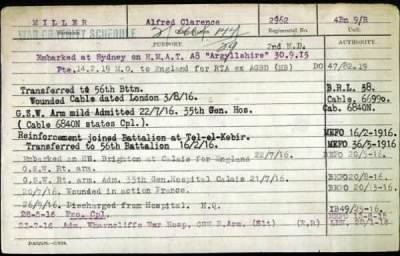 MILLER Alfred Clarence 2962 4Bn 9/B
WAR GRATUITY SCHEDULE
PURPORT. 2nd M.D. AUTHORITY.
Embarked at Sydney on H.M.A.T. A8 "Argyllshire" 30.9.15
Pte. 14.2.19 M.O. to England for RTA ex AGBD (MS) DO 47/82.19
Transferred to 56th Bttn. B.R.L. 38.
Wounded Cable dated London 3/8/16. Cable. 6699o.
G.S.W. Arm mild Admitted 22/7/16. 35th Gen. Hos. Cab. 6840N.
( Cable 6840N states Cpl.).
Reinforcement joined Battalion at Tel-el-Kebir. MEFO 16/2-1916.
Transferred to 56th Battalion 16/2/16. MEFO 36/3-1916
Embarked on HS. Brighton at Calais for England 22/7/16. BEFO
G.S.W. Rt. arm.
G.S.W. Rt. arm. Adm. 35th Gen. Hospital Calais 21/7/16.
20/7/16. Wounded in action France.
26/9/16. Discharged from Hospital. H.Q. IB49/25-16.
28-5-16 Pro. Cpl.
23-7-16 Adm. Wharncliffe War Hosp. GSW R.Arm. (Slt) (E,R)